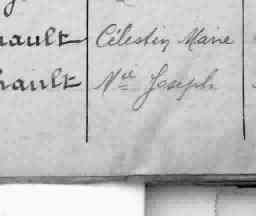 nault Célestin Marie
hault Vie Joseph